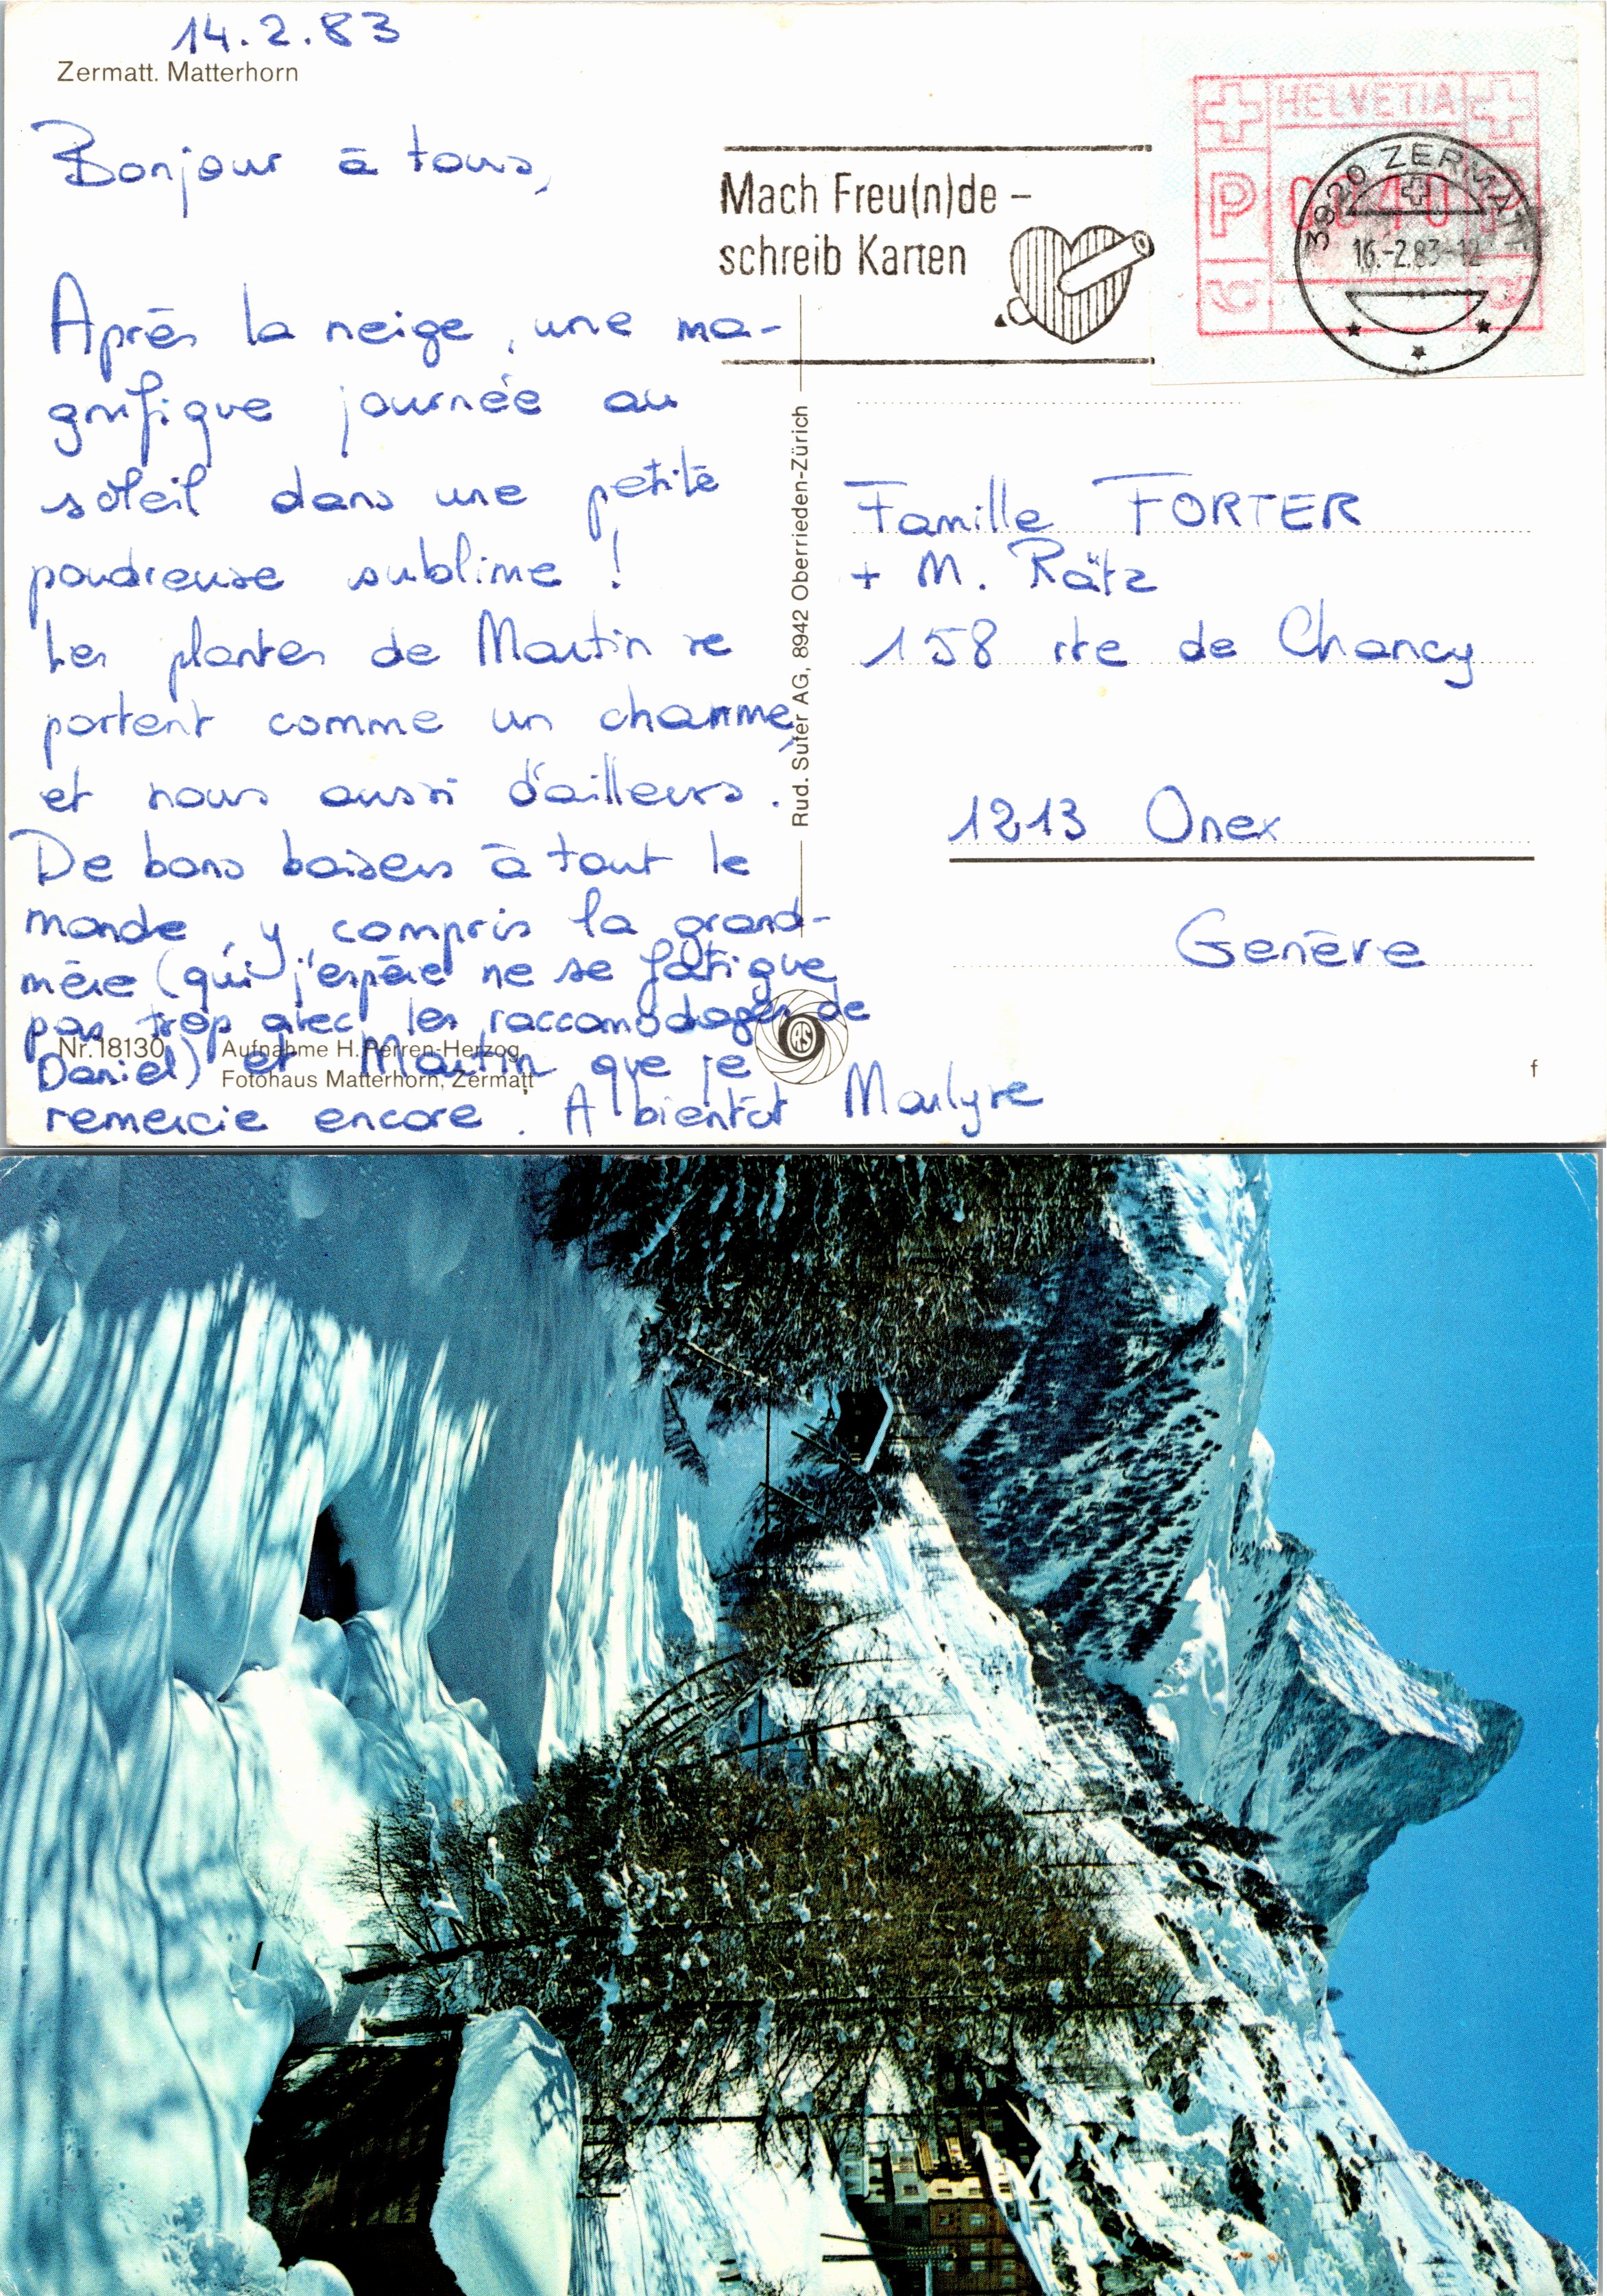 14.2.83
Zermatt. Matterhorn
Bonjour à tous,
Après la neige, une ma-
gnifique journée au
soleil dans une petite
poudreuse sublime !
Les plantes de Martin se
portent comme un charme,
et nous aussi d'ailleurs.
De bons baisers à tout le
monde, y compris la grand-
mère (qui j'espère ne se fatigue
pas trop avec les raccomodages de
Daniel) et Martin que je
remercie encore. A bientôt Marlyse
Nr. 18130
Aufnahme H. Perren-Herzog,
Fotohaus Matterhorn, Zermatt
Rud. Suter AG, 8942 Oberrieden-Zürich
RS
Mach Freu(n)de –
schreib Karten
HELVETIA
P 0040 P
3920 ZERMATT
16.-2.83-12
Famille FORTER
+ M. Rätz
158 rte de Chancy
1213 Onex
Genève
f